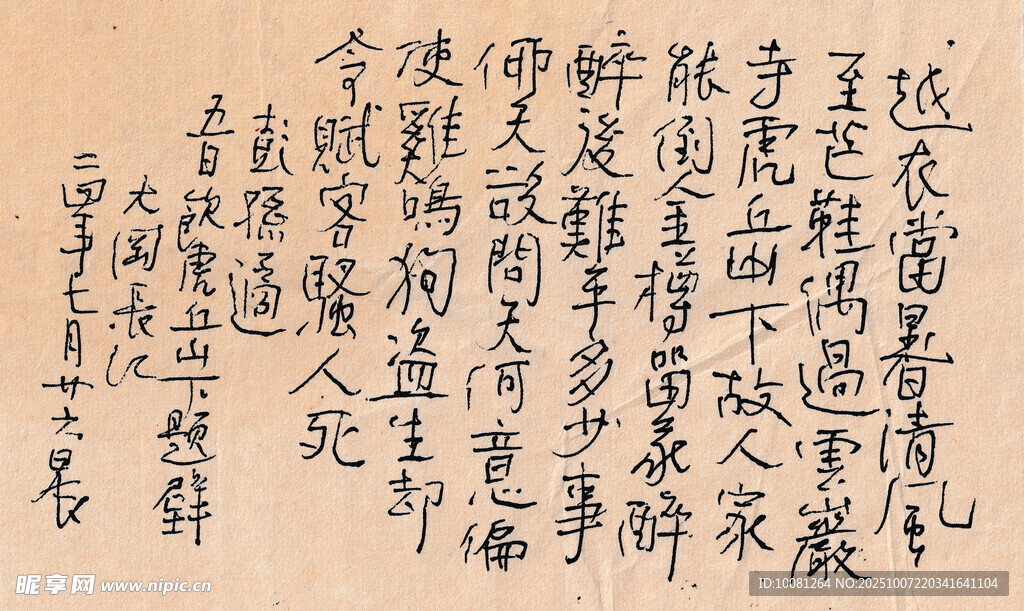 越衣當暑清風
至芒鞋偶過雲巖
寺虎丘山下故人家
能倒金樽留我醉
醉後難平多少事
仰天欲問天何意偏
使雞鳴狗盜生却
令賦客騷人死
彭孫遹
五日飲虎丘山下題壁
大岡長江
二四年七月廿六晨
昵享网 www.nipic.cn
ID:10081264 NO:20251007220341641104